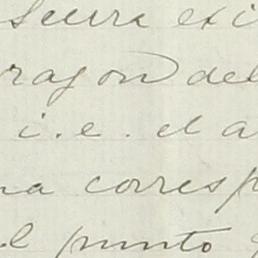 seura exi
ragon del
i.e. el a
na corresp
el punto